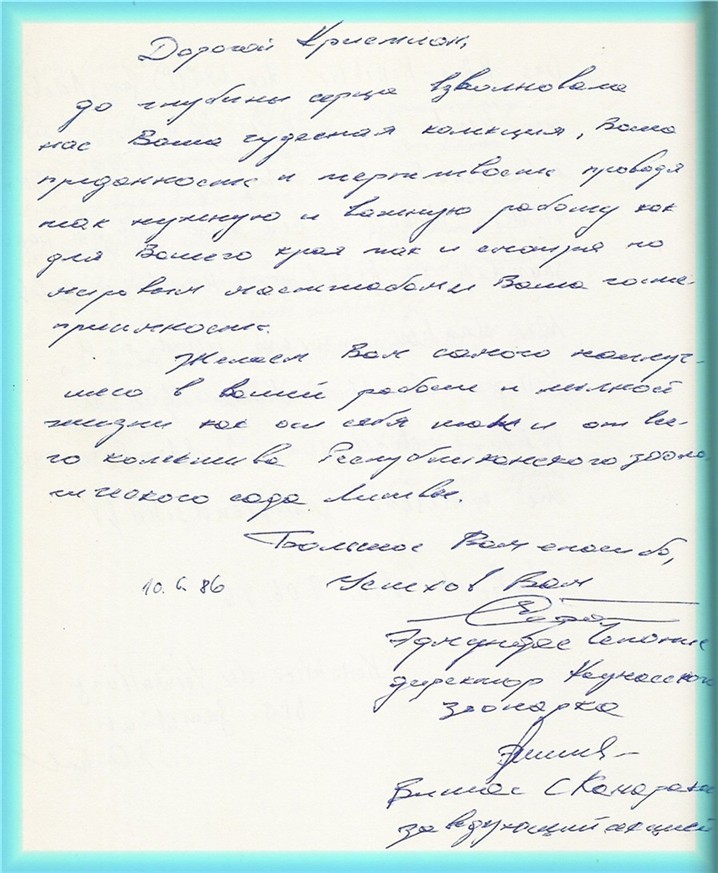 Дорогой Кристиан,
до глубины серца взволновала
нас Ваша чудесная колекция, Ваша
преданность и терпливость проводя
так нужную и важную работу как
для Вашего края так и смотря по
мировым масштабом и Ваша госте-
приимность.
Желаем Вам самого наилуч-
шего в вашей работе и личной
жизни как от себя так и от все-
го колектива Республиканского зооло-
гического сада Литвы.
Большое Вам спасибо,
Успехов Вам
10. 6. 86
Эдмундас
директор Каунасского
зоопарка
Витас
заведующий секцией